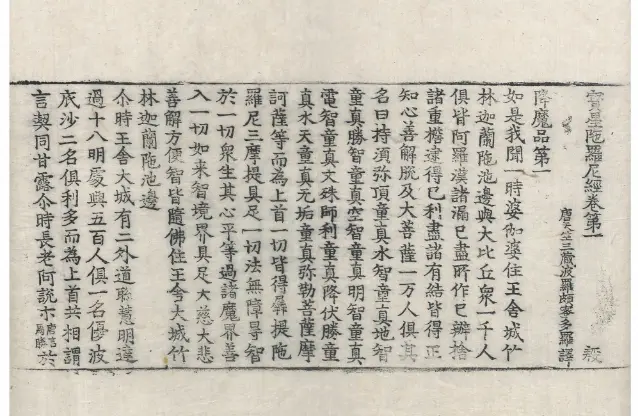 寶星陁羅尼經卷第一
唐天竺三藏波羅頗蜜多羅譯
降魔品第一
如是我聞一時婆伽婆住王舍城竹
林迦蘭陁池邊與大比丘衆一千人
俱皆阿羅漢諸漏已盡所作已辦捨
諸重擔逮得已利盡諸有結皆得正
知心善解脫及大菩薩一万人俱其
名曰持須弥頂童真水智童真地智
童真勝智童真空智童真明智童真
電智童真文殊師利童真降伏勝童
真水天童真无垢童真弥勒菩薩摩
訶薩等而為上首一切皆得羼提陁
羅尼三摩提具足一切法無障㝵智
於一切衆生其心平等過諸魔界善
入一切如来智境界具足大慈大悲
善解方便智皆隨佛住王舍大城竹
林迦蘭陁池邊
尒時王舍大城有二外道聡慧明達
過十八明處與五百人俱一名優波
底沙二名俱利多而為上首共相謂
言契同甘露尒時長老阿說示唐言馬勝於